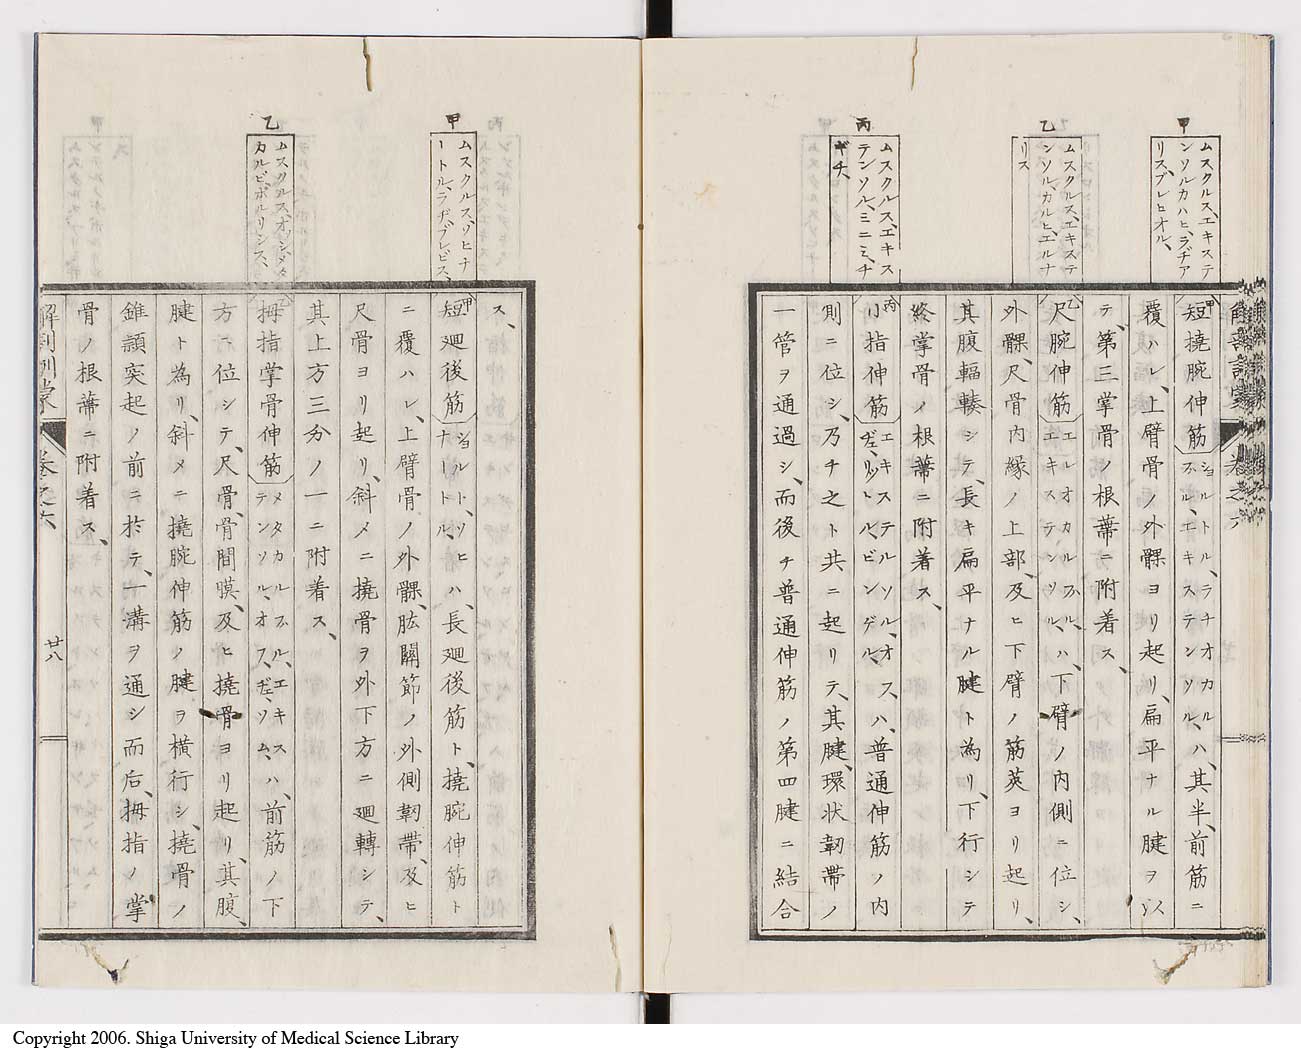 甲
ムスクルス、エキステ
ンソルカルヒ、ラヂア
リス、ブレヒオル、
乙
ムスクルス、エキステ
ンソル、カルヒ、エルナ
リス
丙
ムスクルス、エキス
テンソル、ミニミ、ヂ
ギチ、
甲短撓腕伸筋ショルトル、ラヂオカル
ハ、其半、前筋ニ
覆ハレ、上臂骨ノ外髁ヨリ起リ、扁平ナル腱ヲ以
テ、第三掌骨ノ根蔕ニ附着ス、
乙尺腕伸筋エレオカル
エキステンソル、ハ、下臂ノ内側ニ位シ、
外髁、尺骨内縁ノ上部、及ヒ下臂ノ筋莢ヨリ起リ、
其腹輻輳シテ、長キ扁平ナル腱ト為リ、下行シテ
終掌骨ノ根蔕ニ附着ス、
丙小指伸筋エキステルソル、オス、
ハ、普通伸筋ノ内
則ニ位シ、乃チ之ト共ニ起リテ、其腱、環状韌帯ノ
一管ヲ通過シ、而後チ普通伸筋ノ第四腱ニ結合
甲
ムスクルス、ソヒナ
ートル、ラヂ、ブレビス、
乙
ムスクルス、オッシ、メタ
カルビ、ポルリシス、
ス、
甲短廻後筋ショルト、ソヒ
ナートル、ハ、長廻後筋ト、撓腕伸筋ト
ニ覆ハレ、上臂骨ノ外髁、肱關節ノ外側韌帯、及ヒ
尺骨ヨリ起リ、斜メニ撓骨ヲ外下方ニ廻轉シテ、
其上方三分ノ一ニ附着ス、
乙拇指掌骨伸筋メタカルプル、エキス
テンソル、オフ、ヂ、ソム、ハ、前筋ノ下
方ニ位シテ、尺骨、骨間膜、及ヒ撓骨ヨリ起リ、其腹、
腱ト為リ、斜メニ撓腕伸筋ノ腱ヲ横行シ、撓骨ノ
錐顙突起ノ前ニ於テ、一溝ヲ通シ而后、拇指ノ掌
骨ノ根蔕ニ附着ス、
巻之六
廿八
Copyright 2006. Shiga University of Medical Science Library